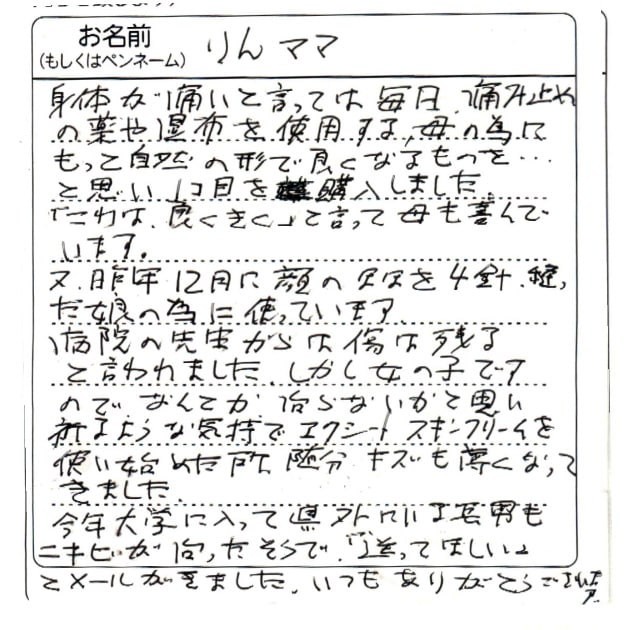 お名前
(もしくはペンネーム)
りんママ
身体が痛いと言っては毎日、痛み止め
の薬や湿布を使用する、母の為に
もっと自然の形で良くなるものを…
と思い1コ目を購入しました。
「これは、良くきく」と言って母も喜んで
います。
又、昨年12月に顔の を4針、縫っ
た娘の為に使っています。
病院の先生からは傷は残る
と言われました。しかし女の子です
ので、なんとか治らないかと思い
祈るような気持でエクシートスキンクリームを
使い始めた所、随分キズも薄くなって
きました。
今年大学に入って県外にいる長男も
ニキビが治ったそうで、「送ってほしい」
とメールがきました。いつもありがとうございます。